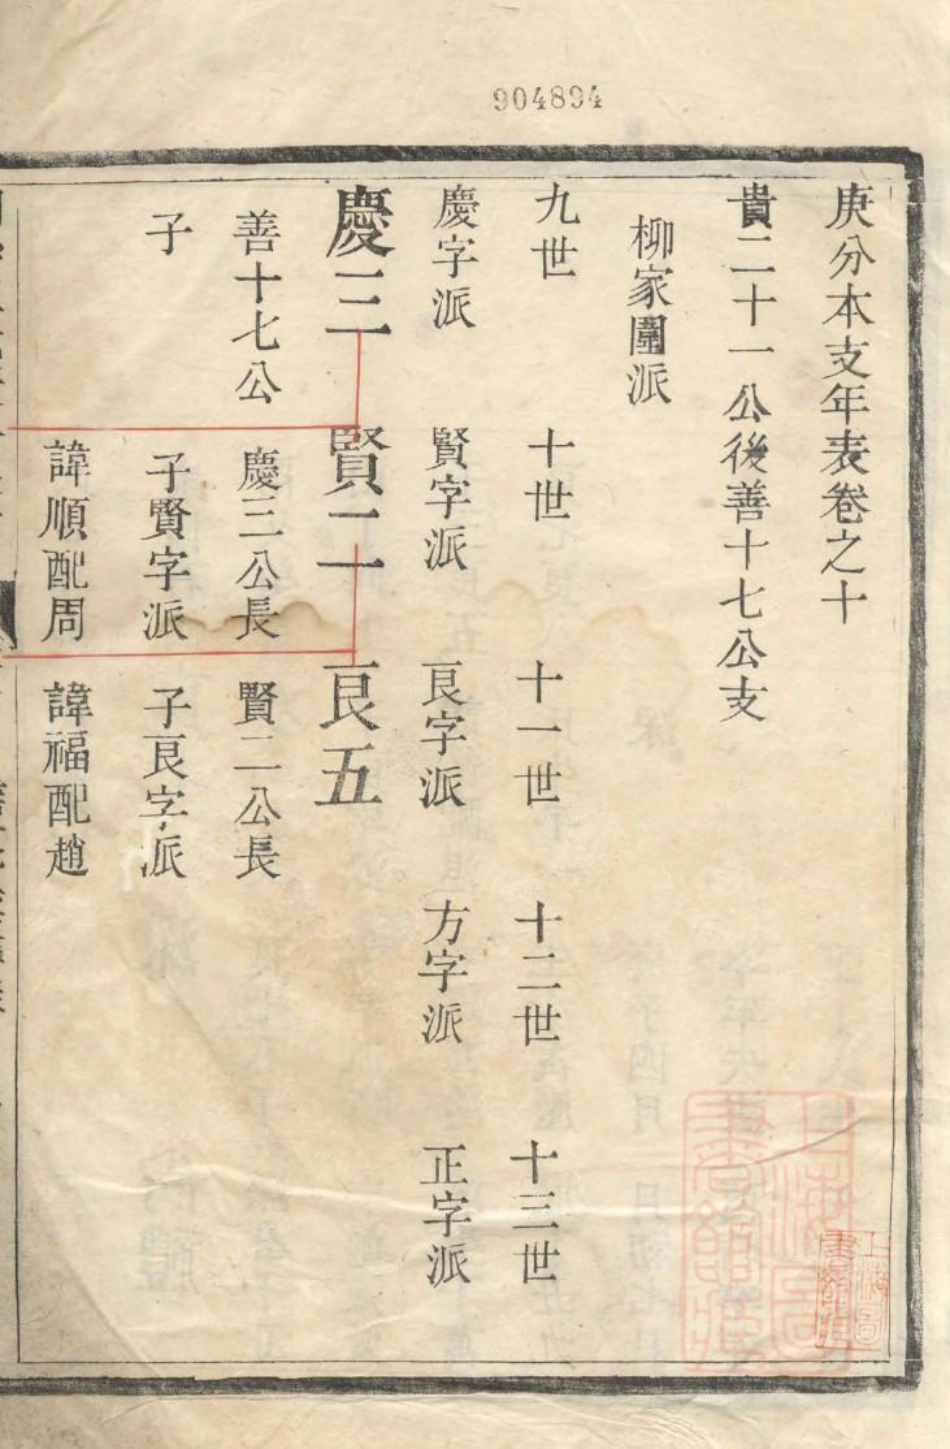 904894
庚分本支年表卷之十
貴二十一公後善十七公支
柳家圍派
九世 十世 十一世 十二世 十三世
慶字派 賢字派 艮字派 方字派 正字派
慶三 賢二 艮五
善十七公 慶三公長 賢二公長
子 子賢字派 子艮字派
諱順配周 諱福配趙